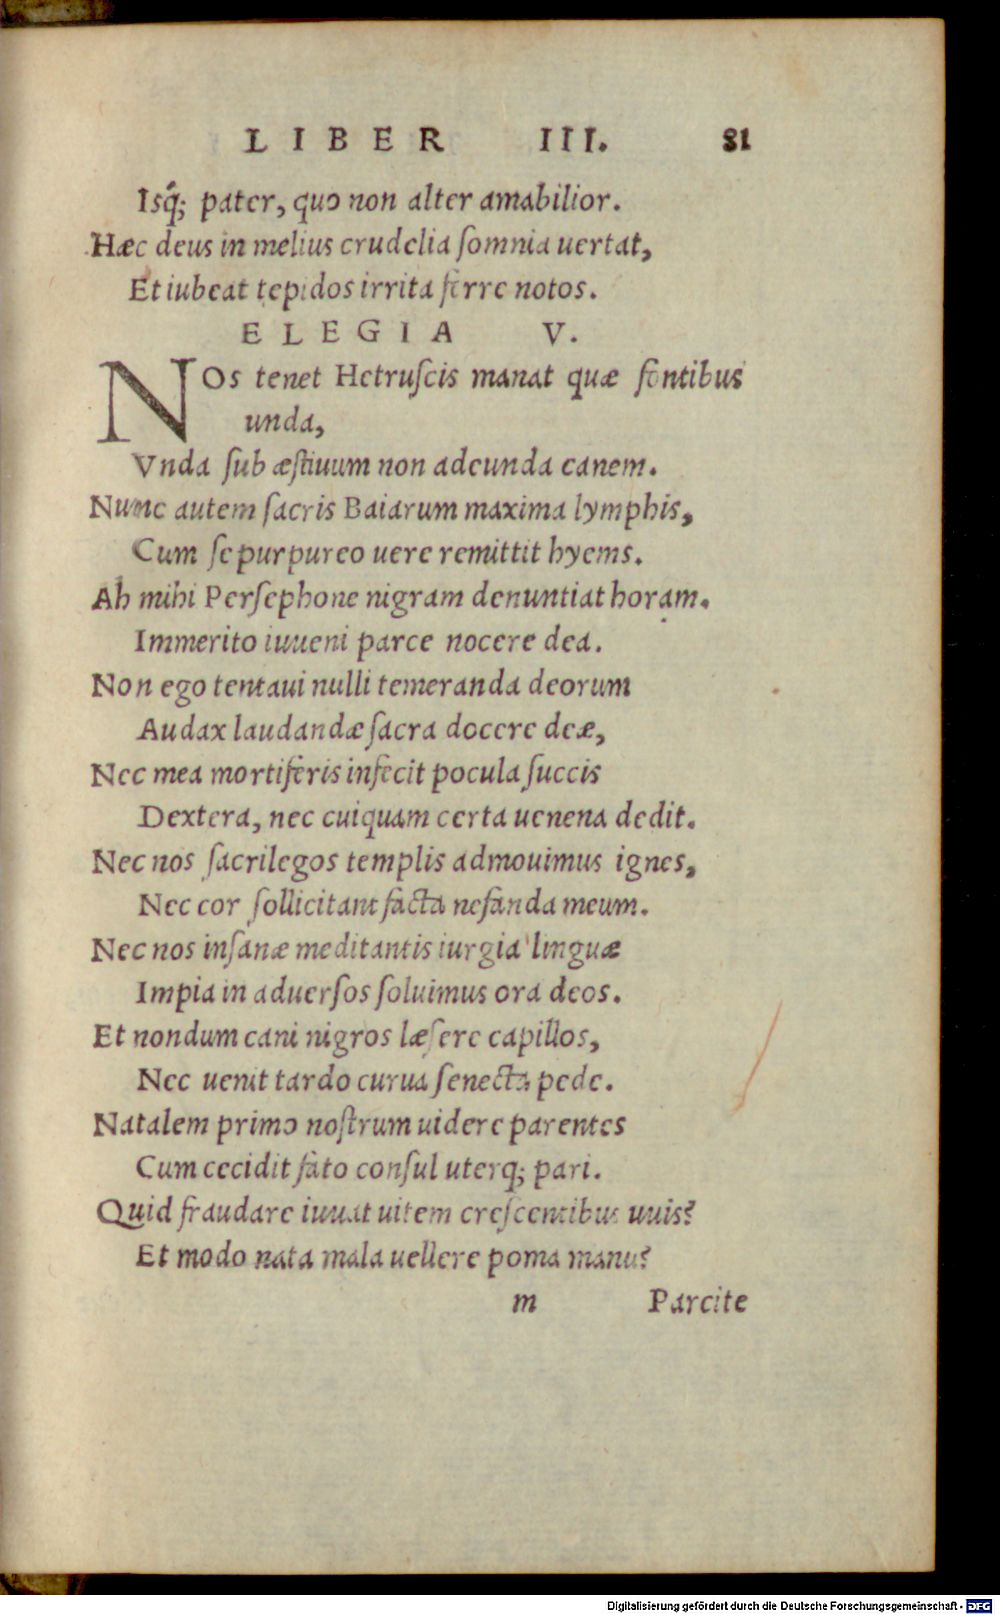 LIBER III. 81
Isq́; pater, quo non alter amabilior.
Hæc deus in melius crudelia ſomnia uertat,
Et iubeat tepidos irrita ferre notos.
ELEGIA V.
NOs tenet Hetruſcis manat quæ fontibus
unda,
Vnda ſub æſtiuum non adeunda canem.
Nunc autem ſacris Baiarum maxima lymphis,
Cum ſe purpureo uere remittit hyems.
Ah mihi Perſephone nigram denuntiat horam.
Immerito iuueni parce nocere dea.
Non ego tentaui nulli temeranda deorum
Audax laudandæ ſacra docere deæ,
Nec mea mortiferis infecit pocula ſuccis
Dextera, nec cuiquam certa uenena dedit.
Nec nos ſacrilegos templis admouimus ignes,
Nec cor ſollicitant facta nefanda meum.
Nec nos inſanæ meditantis iurgia linguæ
Impia in aduerſos ſoluimus ora deos.
Et nondum cani nigros læſere capillos,
Nec uenit tardo curua ſenecta pede.
Natalem primo noſtrum uidere parentes
Cum cecidit fato conſul uterq; pari.
Quid fraudare iuuat uitem creſcentibus uuis?
Et modo nata mala uellere poma manu?
m Parcite
Digitalisierung gefördert durch die Deutsche Forschungsgemeinschaft - DFG